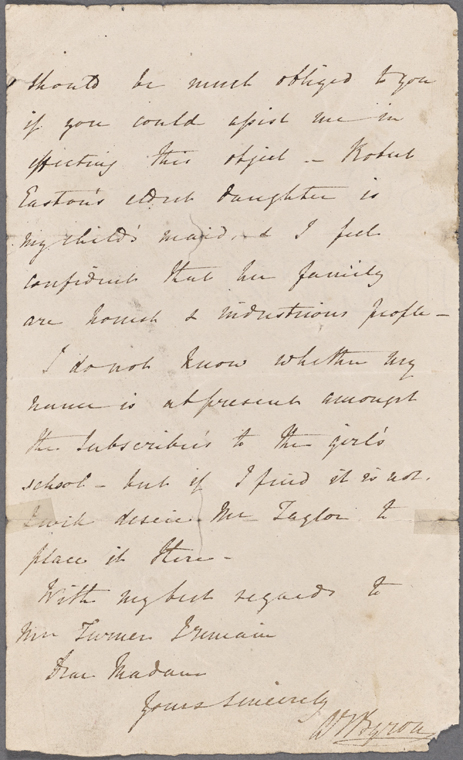 should be much obliged to you
if you could assist me in
effecting this object – Robert
Easton's eldest daughter is
my child's maid, & I feel
confident that her family
are honest & industrious people –
I do not know whether my
name is at present amongst
the subscribers to the girl's
school – but if I find it is not,
I will desire Mr Taylor to
place it there –
With my best regards to
Mr Turner I remain
Dear Madam
Yours sincerely
Byron